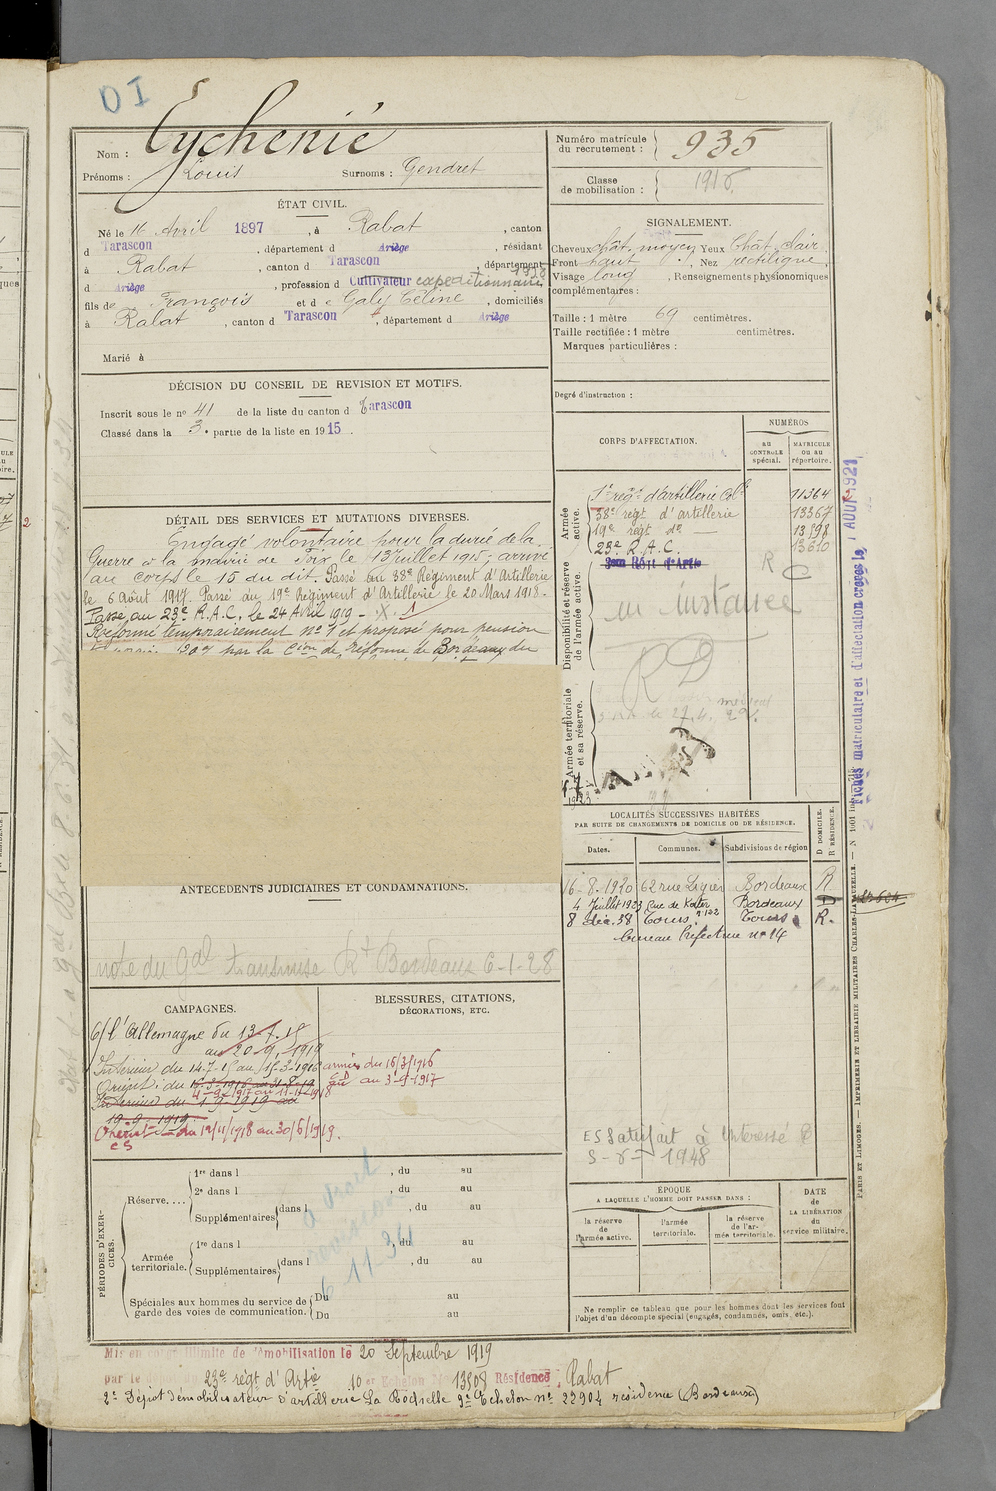 DI
Nom : Eychenié
Prénoms : Louis Surnoms : Gendret
Numéro matricule du recrutement : 935
Classe de mobilisation : 1915
ÉTAT CIVIL.
Né le 16 Avril 1897, à Rabat, canton
d Tarascon, département d Ariège, résidant
à Rabat, canton d Tarascon, département
d Ariège, profession d Cultivateur expéditionnaire 1928
fils de François et de Galy Céline, domiciliés
à Rabat, canton d Tarascon, département d Ariège
Marié à
SIGNALEMENT.
Cheveux chât. moyen Yeux Chât. clair
Front haut, Nez rectiligne
Visage long, Renseignements physionomiques
complémentaires :
Taille : 1 mètre 69 centimètres.
Taille rectifiée : 1 mètre centimètres.
Marques particulières :
Degré d'instruction :
DÉCISION DU CONSEIL DE REVISION ET MOTIFS.
Inscrit sous le no 41 de la liste du canton d Tarascon
Classé dans la 3e partie de la liste en 1915.
DÉTAIL DES SERVICES ET MUTATIONS DIVERSES.
Engagé volontaire pour la durée de la
Guerre à la mairie de Foix le 13 Juillet 1915; arrivé
au corps le 15 du dit. Passé au 38e Régiment d'Artillerie
le 6 Août 1917. Passé au 19e Régiment d'Artillerie le 20 Mars 1918.
Passé au 23e R.A.C, le 24 Avril 1919 -
Réformé temporairement no 1 et proposé pour pension
par la Cion de réforme de Bordeaux du
CORPS D'AFFECTATION.
NUMÉROS
AU CONTRÔLE spécial.
MATRICULE ou au répertoire.
Armée active.
1er régt d'artillerie Cole 11364
38e régt d'artillerie 13367
19e régt do 13598
23e R.A.C. 13610
3em Régt d'Artie
R C
Disponibilité et réserve de l'armée active.
en instance
RD
Armée territoriale et sa réserve.
Fiches matriculaire et d'affectation créées le 1 AOUT 1921
LOCALITÉS SUCCESSIVES HABITÉES
PAR SUITE DE CHANGEMENTS DE DOMICILE OU DE RÉSIDENCE.
Dates. Communes. Subdivisions de région D DOMICILE. R RÉSIDENCE.
16-8-1920 62 rue Ligier Bordeaux R
4 Juillet 1923 Rue de Kater no 122 Bordeaux D
8 déc. 38 Tours Tours R.
bureau Préfecture no 14
ANTÉCÉDENTS JUDICIAIRES ET CONDAMNATIONS.
note du Gal transmise Rt Bordeaux 6-1-28
CAMPAGNES.
C/ l'Allemagne du 13-7-15
au 20-9-1919
Intérieur du 14-7-15 au 15-3-1916 armées du 16/3/1916
Orient : du 16-3-1916 au 31-8-19 au 3-9-1917
4-9-1917 au 11-11-1918
Intérieur du 1-9-1919 au
19-9-1919
Orient du 12/11/1918 au 30/6/1919.
CS
BLESSURES, CITATIONS,
DÉCORATIONS, ETC.
ES Satisfait à intéressé
1948
PÉRIODES D'EXERCICES.
Réserve.... 1re dans l , du au
2e dans l , du au
Supplémentaires dans l , du au
Armée territoriale. 1re dans l , du au
Supplémentaires dans l , du au
Spéciales aux hommes du service de garde des voies de communication. Du au
Du au
à droit
6 11-34
ÉPOQUE
A LAQUELLE L'HOMME DOIT PASSER DANS :
la réserve de l'armée active.
l'armée territoriale.
la réserve de l'armée territoriale.
DATE de LA LIBÉRATION du service militaire.
Ne remplir ce tableau que pour les hommes dont les services font
l'objet d'un décompte spécial (engagés, condamnés, omis, etc.).
PARIS ET LIMOGES. — IMPRIMERIE ET LIBRAIRIE MILITAIRES CHARLES-LAVAUZELLE.
Mis en congé illimité de démobilisation le 20 Septembre 1919
par le 23e régt d'Artie 10 er Echelon No 13508 Résidence : Rabat
2e Dépôt démobilisateur d'artillerie La Rochelle 9e Echelon no 22904 résidence (Bordeaux)